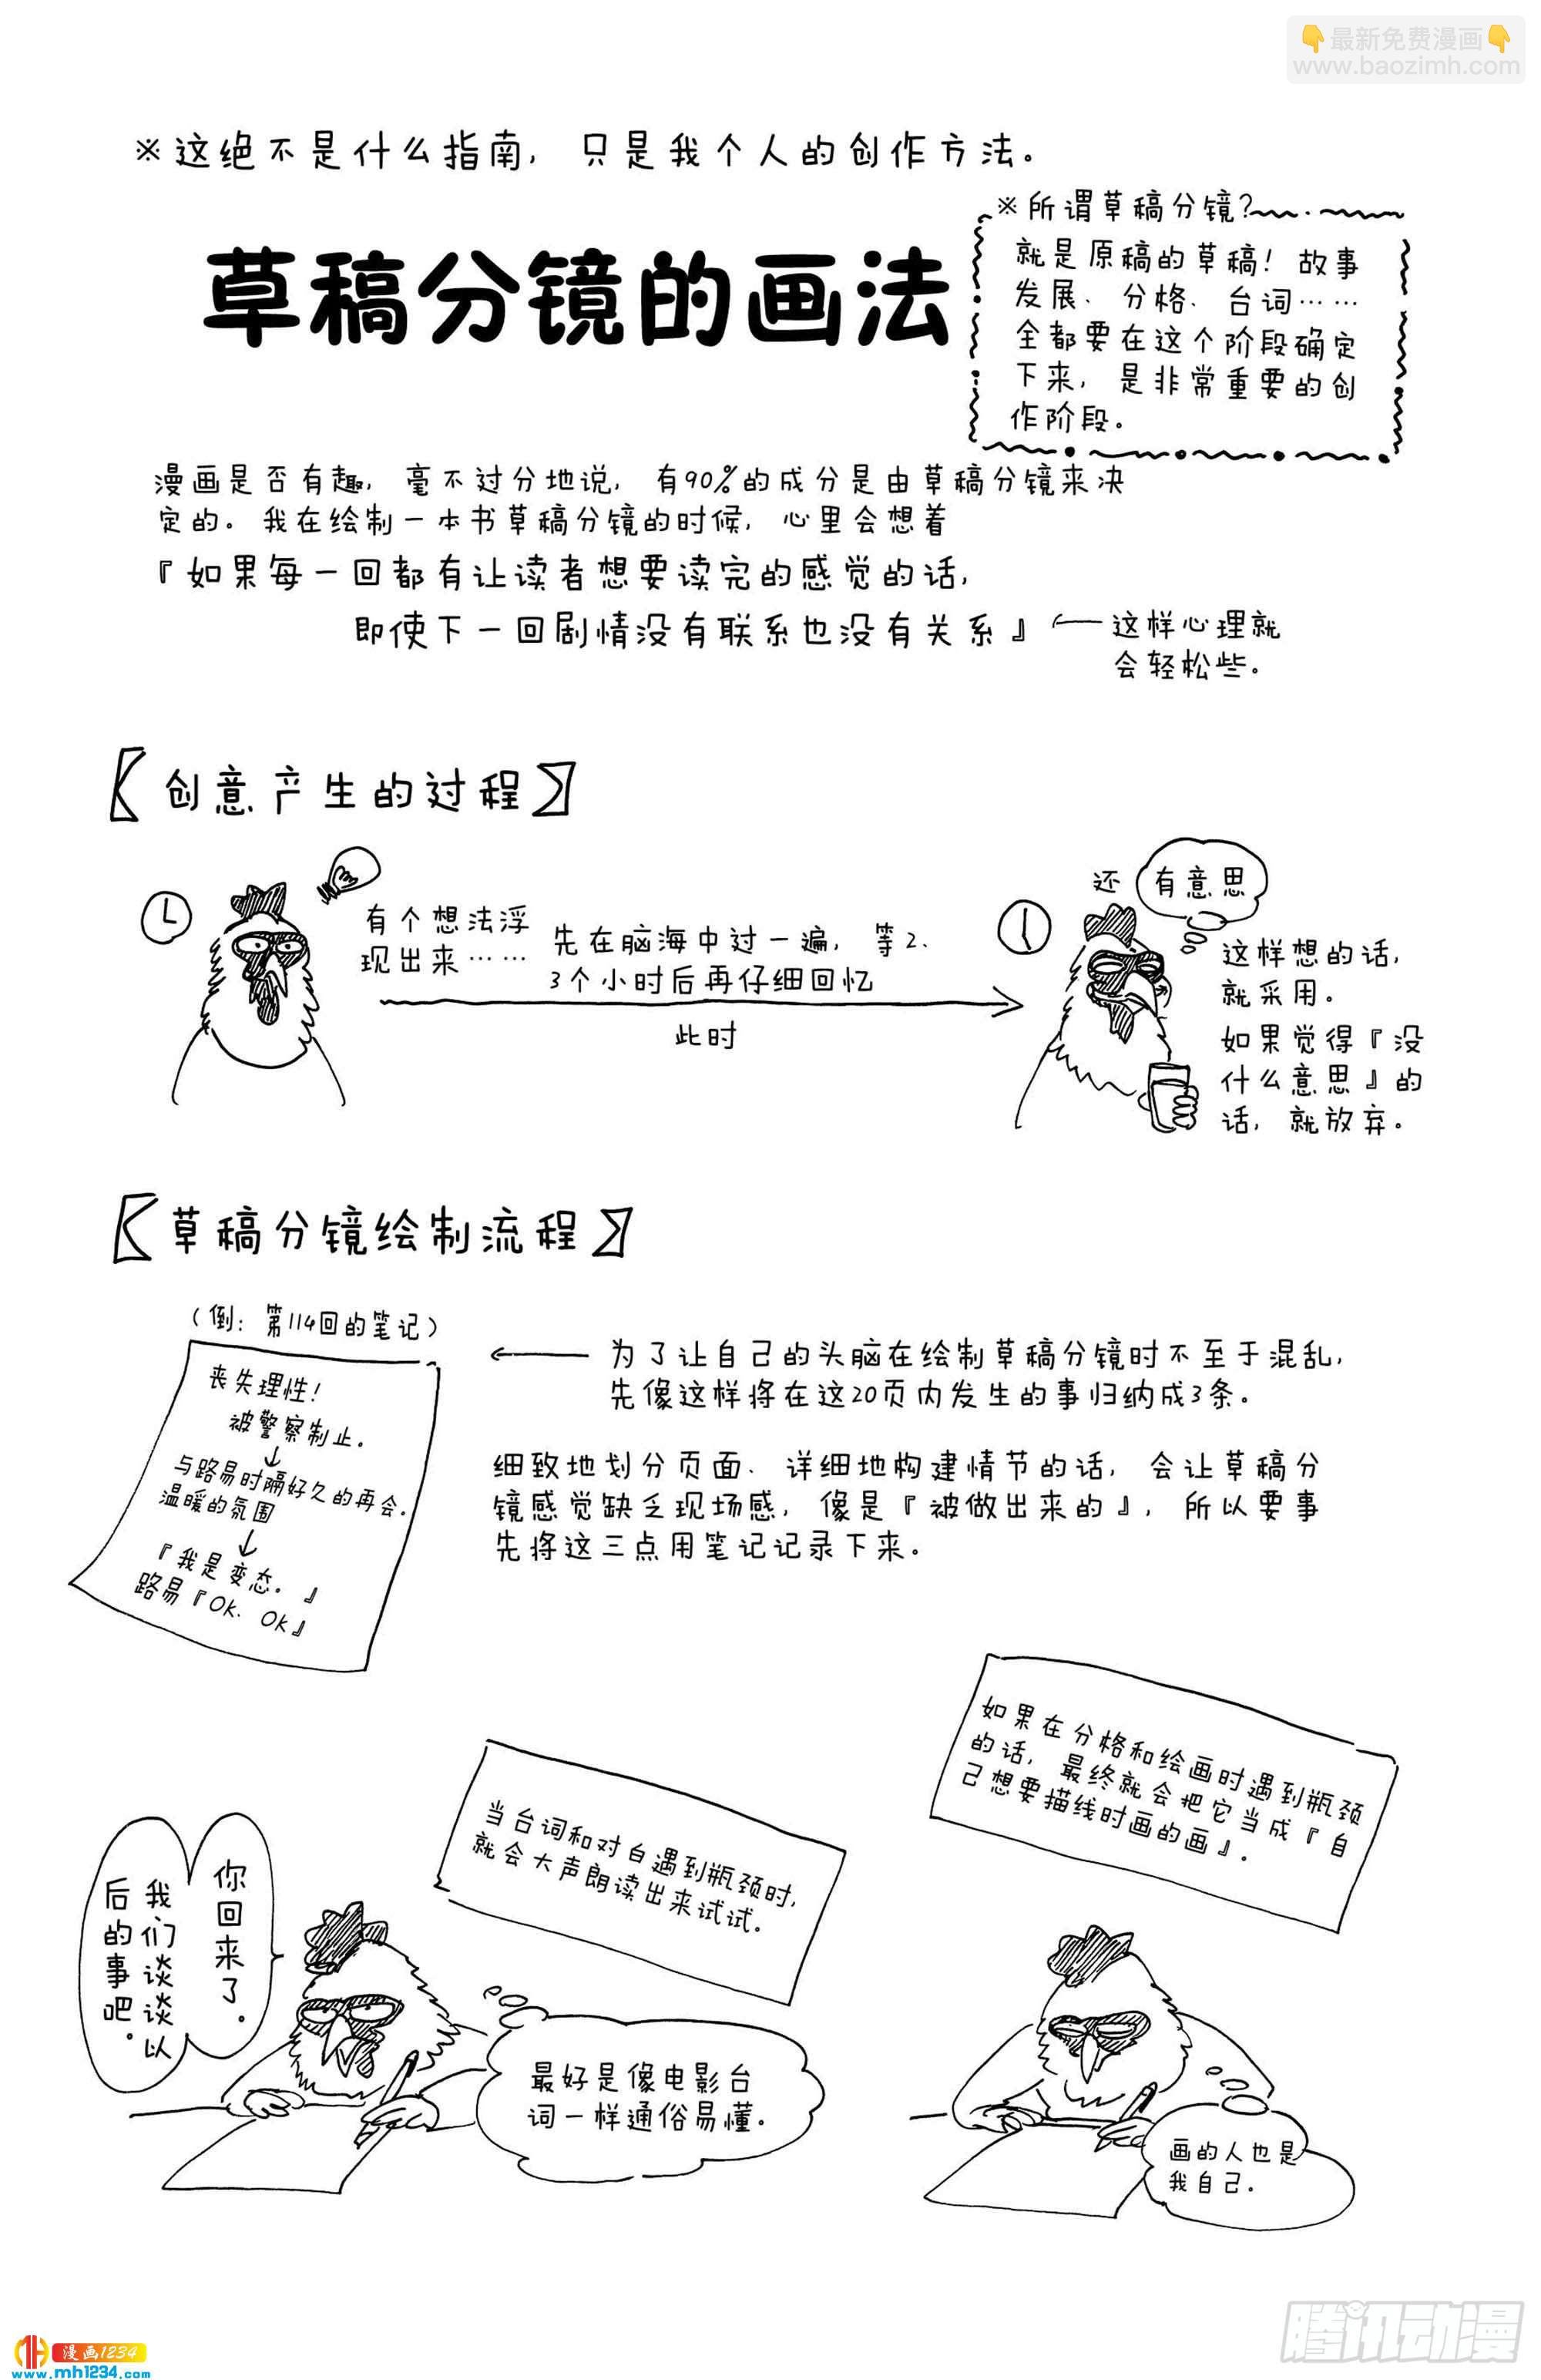 👇最新免费漫画👇
www.baozimh.com
※这绝不是什么指南，只是我个人的创作方法。
草稿分镜的画法
※所谓草稿分镜？
就是原稿的草稿！故事
发展、分格、台词……
全都要在这个阶段确定
下来，是非常重要的创
作阶段。
漫画是否有趣，毫不过分地说，有90%的成分是由草稿分镜来决
定的。我在绘制一本书草稿分镜的时候，心里会想着
『如果每一回都有让读者想要读完的感觉的话，
即使下一回剧情没有联系也没有关系』
这样心理就
会轻松些。
【创意产生的过程】
有个想法浮
现出来……
先在脑海中过一遍，等2、
3个小时后再仔细回忆
此时
还
有意思
这样想的话，
就采用。
如果觉得『没
什么意思』的
话，就放弃。
【草稿分镜绘制流程】
（倒：第114回的笔记）
丧失理性！
被警察制止。
↓
与路易时隔好久的再会。
温暖的氛围
↓
『我是变态。』
路易『OK、OK』
为了让自己的头脑在绘制草稿分镜时不至于混乱，
先像这样将在这20页内发生的事归纳成3条。
细致地划分页面、详细地构建情节的话，会让草稿分
镜感觉缺乏现场感，像是『被做出来的』，所以要事
先将这三点用笔记记录下来。
如果在分格和绘画时遇到瓶颈
的话，最终就会把它当成『自
己想要描线时画的画』。
当台词和对白遇到瓶颈时，
就会大声朗读出来试试。
你回来了。
我们谈谈以
后的事吧。
最好是像电影台
词一样通俗易懂。
画的人也是
我自己。
腾讯动漫
漫画1234
www.mh1234.com